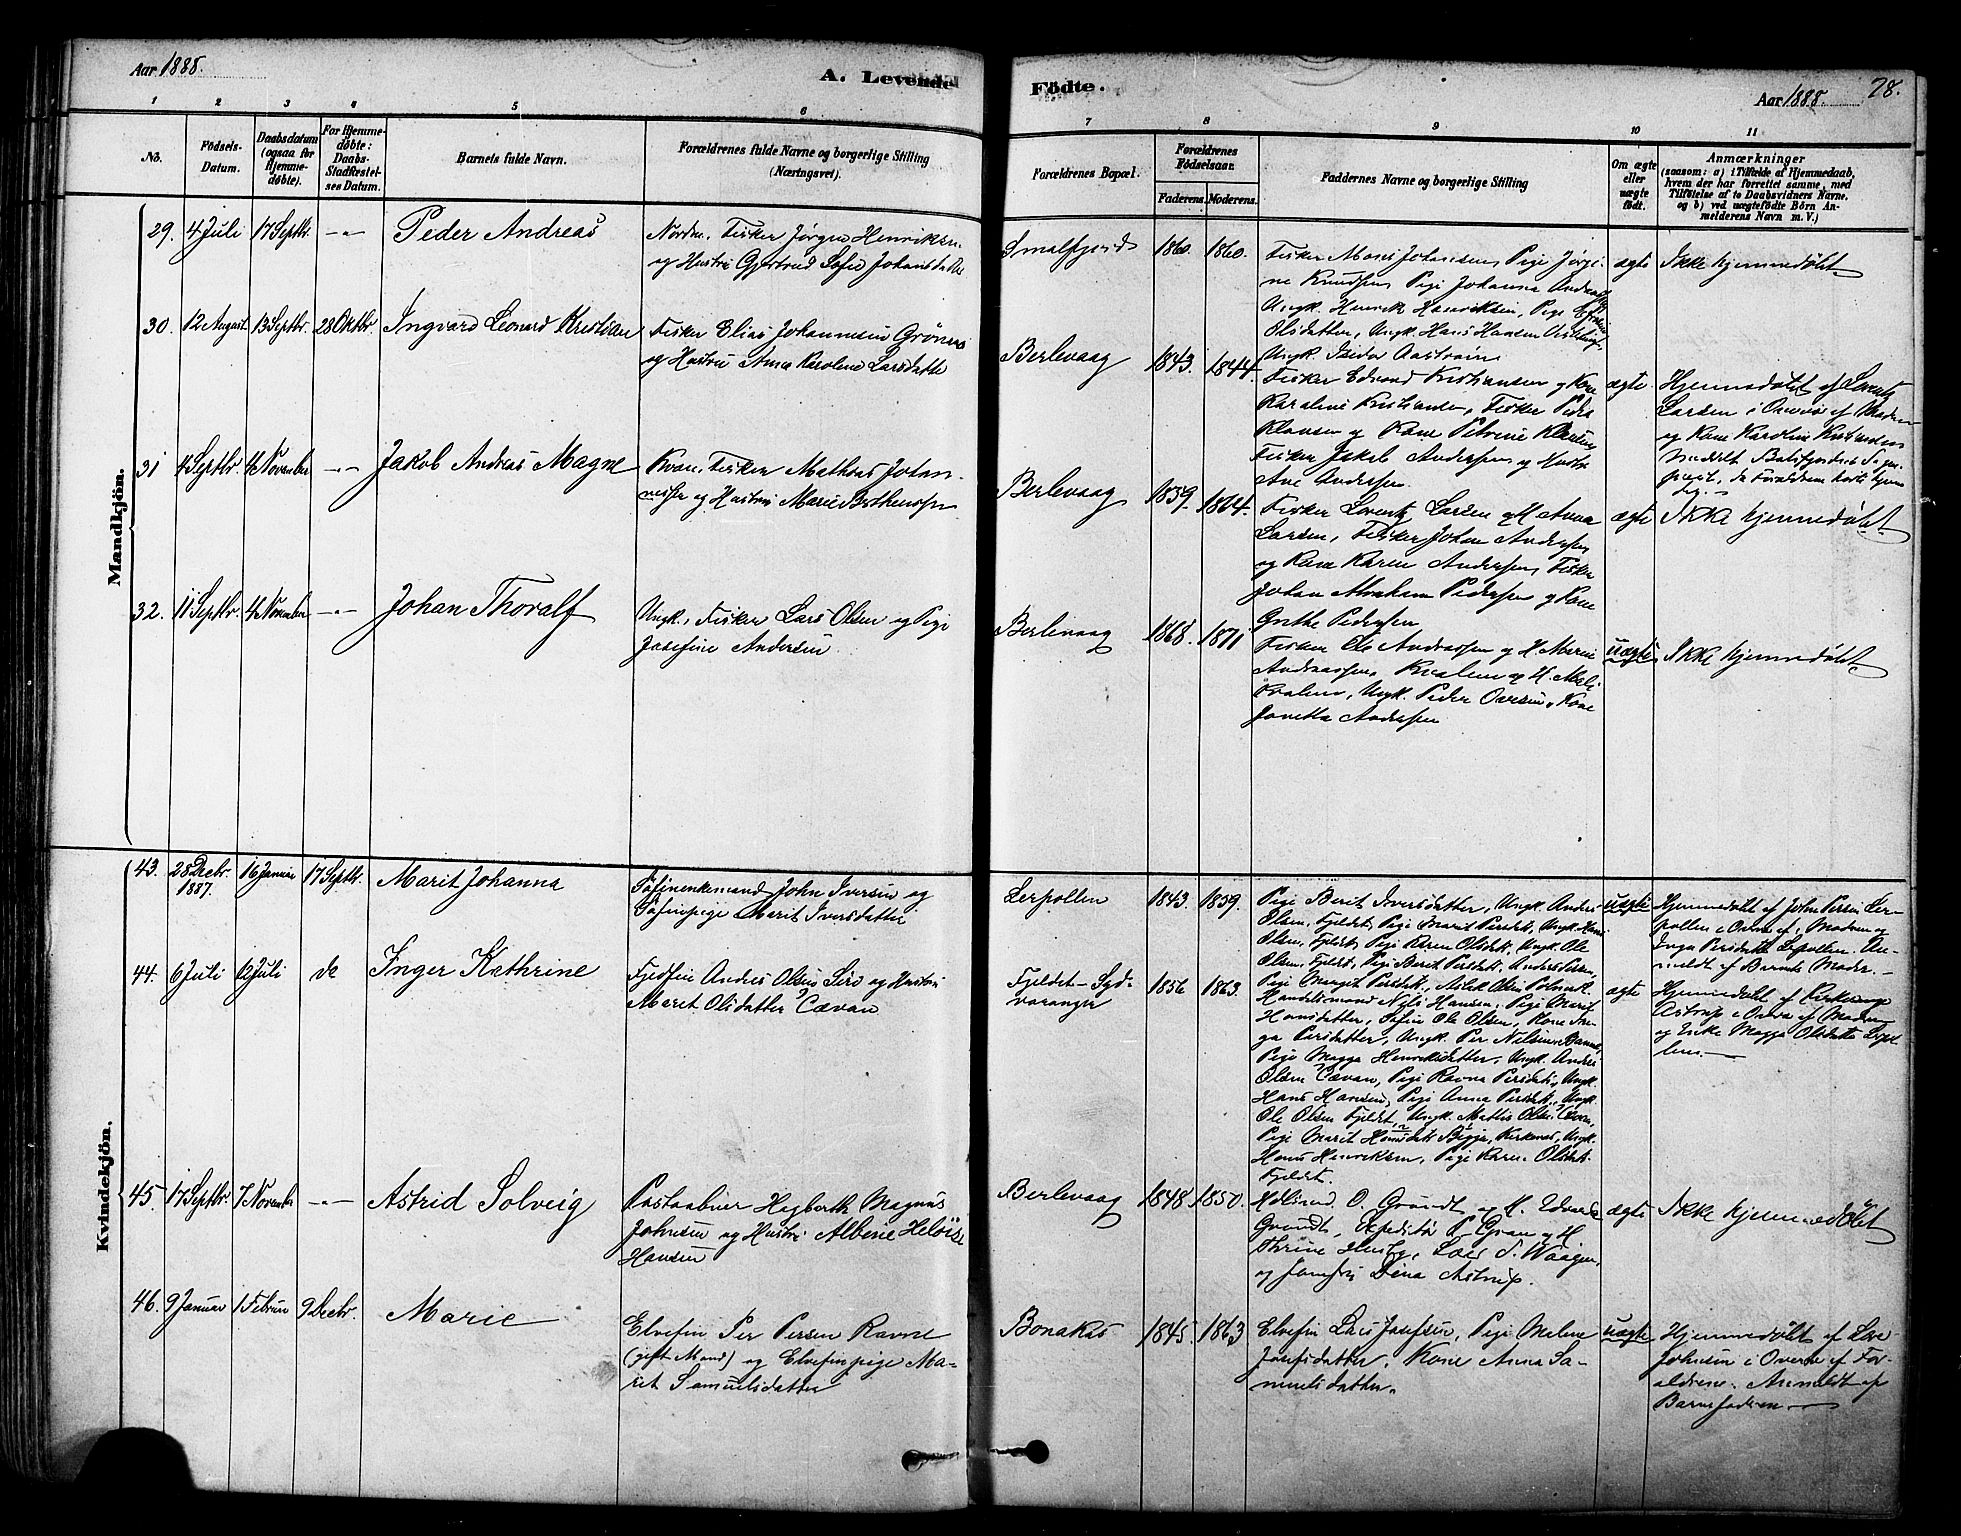 Aar 1888.
A. Levende
Födte.
Aar 1888.
78.
1 2 3 4 5 6 7 8 9 10 11
No.
Födsels-
Datum.
Daabsdatum
(ogsaa for
Hjemme-
döbte).
For Hjemme-
döbte:
Daabs-
Stadfæstel-
ses Datum.
Barnets fulde Navn.
Forældrenes fulde Navne og borgerlige Stilling
(Næringsvei).
Forældrenes Bopæl.
Forældrenes
Födselsaar.
Faderens. Moderens.
Faddernes Navne og borgerlige Stilling
Om ægte
eller
uægte
födt.
Anmærkninger
(saasom: a) i Tilfælde af Hjemmedaab,
hvem der har forrettet samme, med
Tilföielse af to Daabsvidners Navne.
og b) ved uægtefödte Börn An-
melderens Navn m. V.)
Mandkjön.
29. 4 Juli 17 Septbr. -"- Peder Andreas
Fisker Jørgen Henriksen
og Hustru Gjertrud Sofie
Smalfjord 1860. 1860.
Fisker Mons Johansen, Pige Jørgi-
ne Knudsen, Pige Johanna
Ungk. Henrik Henriksen, Pige
Olsdatter, Ungk. Hans Hansen
Ungk. Isidor Aastrøm
ægte Ikke hjemmedøbt
30. 12 August 13 Septbr. 28 Oktbr. Ingvard Leonard Kristian
Fisker Elias Johannesen Grönnes
og Hustru Anna Karoline Larsdatter
Berlevaag 1843. 1844.
Fisker Edvard Kristiansen og Kone
Karoline Kristiansen, Fisker Peder
Klausen og Kone Petrine Klausen
Fisker Jakob Andersen og Hustru
Ane Andersen.
ægte. Hjemmedøbt af Lorentz
Larsen i Overvær af Moderen
og Kone Karoline Kristiansen
31 4 Septbr. 4 November -"- Jakob Andreas Magne
Kvæn, Fisker Mathias Johan-
nessen og Hustru Marie
Berlevaag 1839. 1864.
Fisker Lorentz Larsen og H. Anna
Larsen, Fisker Johan Andersen
og Kone Karen Andersen, Fisker
Johan Abraham Pedersen og Kone
Grethe Pedersen
ægte Ikke hjemmedøbt
32. 11 Septbr. 4 November -"- Johan Thoralf
Ungk. Fisker Lars Olsen og Pige
Josefine Andersen
Berlevaag 1868. 1871
Fisker Ole Andreassen og H. Maren
Andreassen, Kvalen og H.
Kvalen, Ungk. Peder Oversen, Kone
Jonetta Andersen
uægte Ikke hjemmedøbt
Kvindekjön.
43. 28 Decbr. 1887. 16 Januar 17 Septbr. Marit Johanna
Søfinenkemand John Iversen og
Søfinpige Marit Iversdatter
Lerpollen 1843. 1859.
Pige Berit Iversdatter, Ungk. Anders
Olsen, Fjeldet, Pige Marit Persdatt., Ungk. Hans
Olsen, Fjeldet, Pige Karen Olsdatt., Ungk. Ole
Olsen, Fjeldet, Pige Berit Persdatt., Anders Persen,
Pige Margit Persdatt., Aslak Olsen Polmak.
uægte Hjemmedøbt af John Persen Ler-
pollen i Overv. af Moderen og
Inga Persdatter Lerpollen. An-
meldt af Barnets Moder.
44. 6 Juli 12 Juli do Inger Kathrine
Fjeldfin Andres Olsen Sirö og Hustru
Maret Olsdatter Cævan
Fjeldet - Syd-
varanger 1856 1863.
Handelsmand Nils Hansen, Pige Marit
Hansdatter, Søfin Ole Olsen, Kone In-
ga Persdatter, Ungk. Per Nilsen Banne,
Pige Magga Henriksdatter, Ungk. Andres
Olsen Cævan, Pige Ravna Persdatt., Ungk.
Hans Hansen, Pige Anna Persdatt., Ungk.
Ole Olsen Fjeldet, Ungk. Mathis Olsen Cævan,
Pige Marit Hansdatt. Bigga, Kirkenes, Ungk.
Hans Henriksen, Pige Karen Olsdatt.
Fjeldet.
ægte Hjemmedøbt af
Astrup i Overv. af Moderen
og Enke Magga Olsdatter Lerpol-
len.
45. 17 Septbr. 7 November -"- Astrid Solveig
Postaabner Hagbarth Magnus
Johnsen og Hustru Albene Heloïse
Hansen
Berlevaag 1848 1850.
O. Grundt og H. Edvarda
Grundt, Expeditør P. Gran og H.
Thrine Husby, Lars S. Waagen,
og Jomfru Dina Astrup.
ægte Ikke hjemmedøbt
46. 9 Januar 1 Februar 9 Decbr. Marie
Elvefin Per Persen Ravna
(gift Mand) og Elvefinpige Ma-
ret Samuelsdatter
Bonakas 1845. 1863
Elvefin Lars Josefsen, Pige Malene
Josefsdatter, Kone Anna Sa-
muelsdatter.
uægte Hjemmedøbt af Lars
Johnsen i Overv. af For-
ældrene. Anmeldt af
Barnefaderen